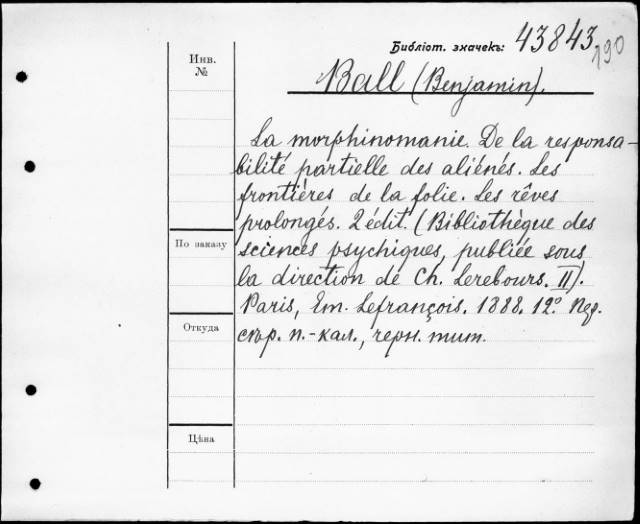 Библіот. значекъ: 43843
190
Инв.
№
Ball (Benjamin).
La morphinomanie. De la responsa-
bilité partielle des aliénés. Les
frontières de la folie. Les rêves
prolongés. 2 édit. (Bibliothèque des
По заказу
sciences psychiques, publiée sous
la direction de Ch. Lerebours. II).
Paris, Em. Lefrançois. 1888. 12º. Пер.
Откуда
сѣр. п.-кал., черн. тит.
Цѣна